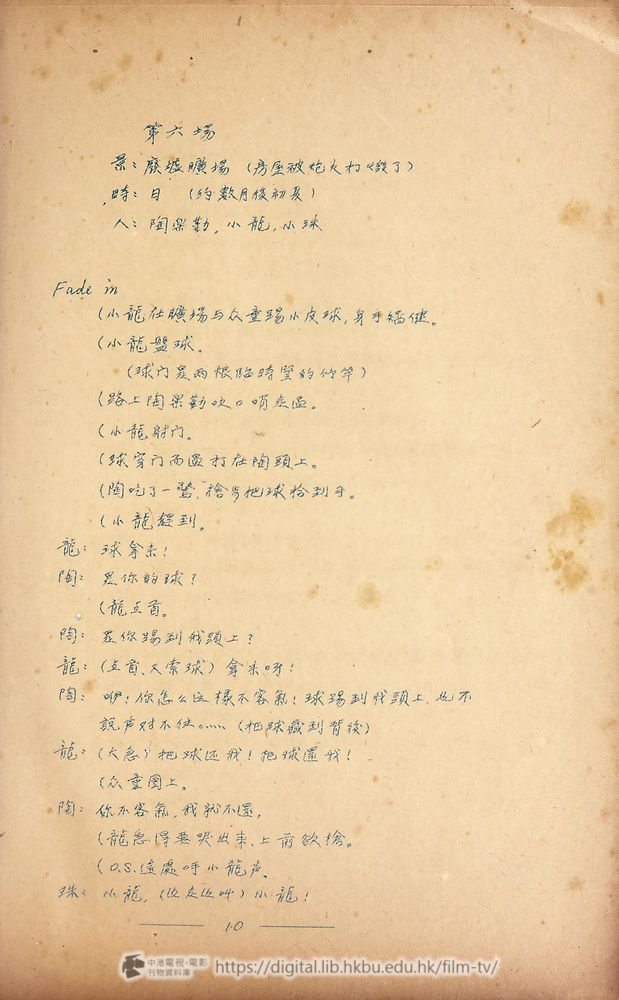 第六場
景：廢墟曠場（房屋被炮火打燬了）
時：日 （約數月後初夏）
人：陶樂勤，小龍，小珠
Fade in
（小龍在曠場与众童踢小皮球，身手矯健。
（小龍盤球。
（球门是兩根臨時豎的竹竿）
（路上陶樂勤吹口哨走過。
（小龍射门。
（球穿门而過打在陶頭上。
（陶吃了一驚，搶步把球拾到手。
（小龍趕到。
龍：球拿來！
陶：是你的球？
（龍点首。
陶：是你踢到我頭上？
龍：（点首，又索球）拿來呀！
陶：咿！你怎么这樣不客氣！球踢到我頭上，也不
説声对不住……（把球藏到背後）
龍：（大急）把球还我！把球還我！
（众童圍上。
陶：你不客氣，我就不還，
（龍急得要哭出來，上前欲搶。
（O.S.遠處呼小龍声。
珠：小龍，（边走边叫）小龍！
10
中港電視·電影
刊物資料庫
https://digital.lib.hkbu.edu.hk/film-tv/